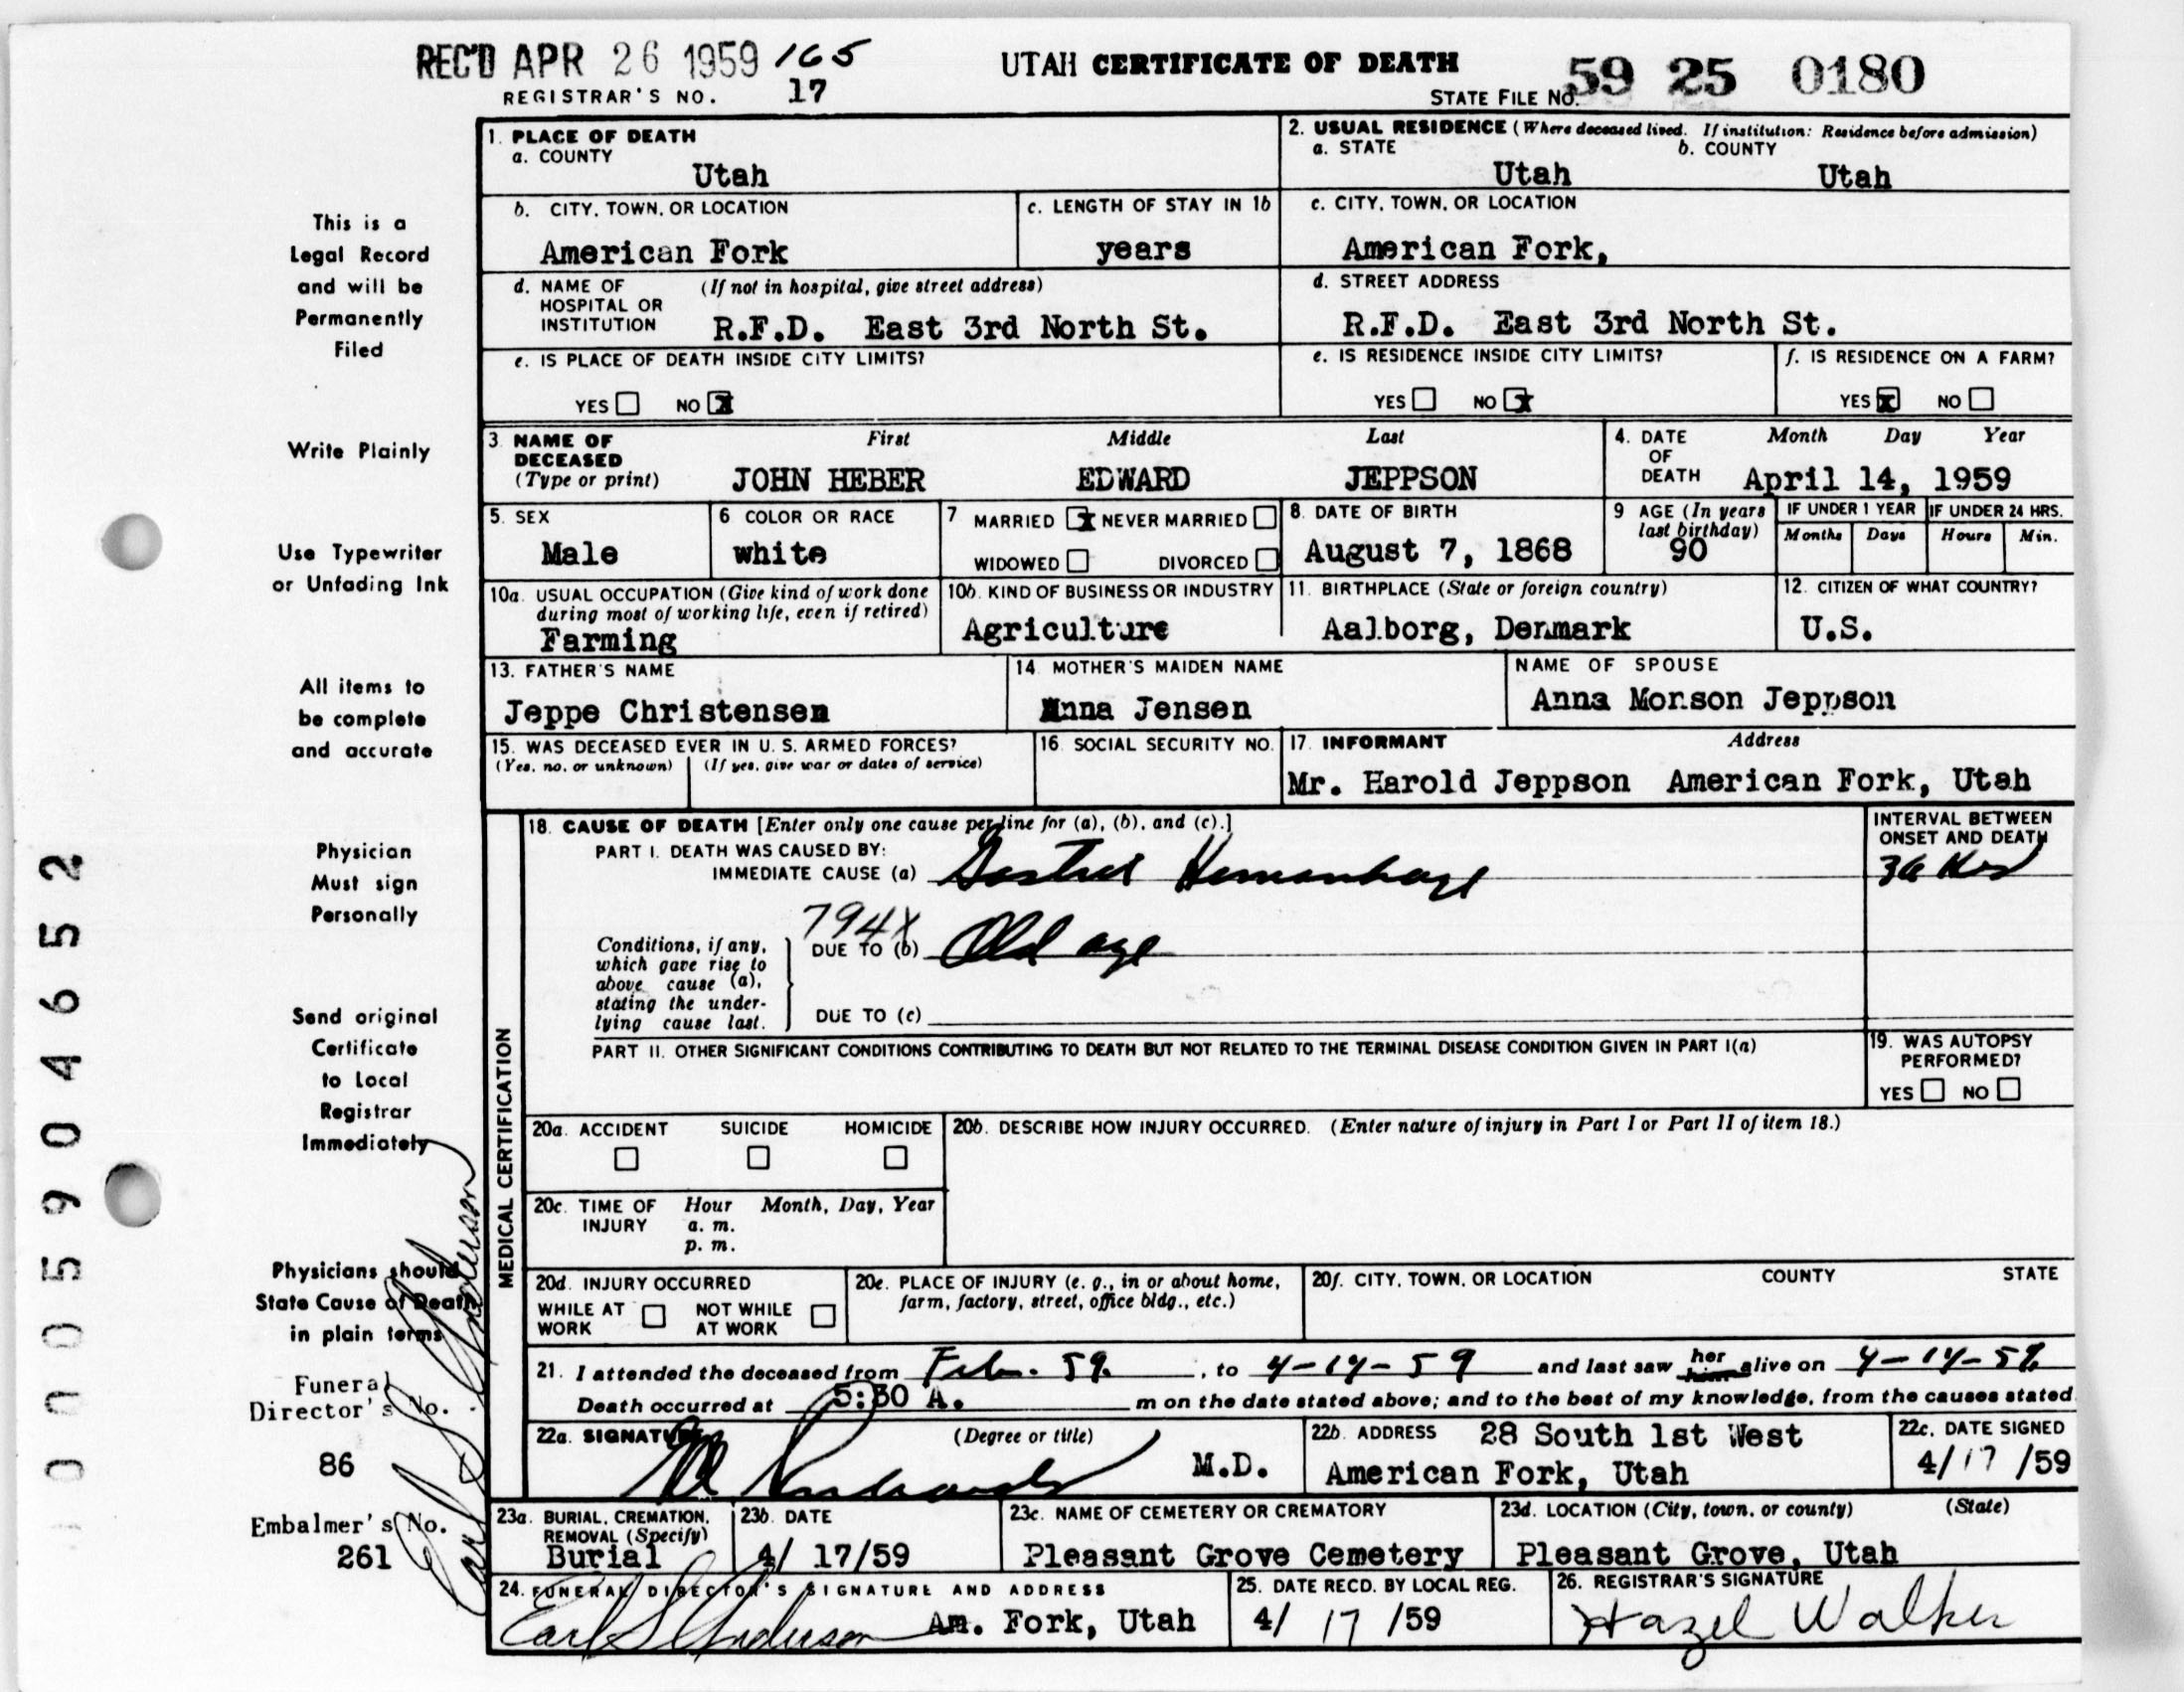 REC'D APR 26 1959 165
UTAH CERTIFICATE OF DEATH
59 25 0180
REGISTRAR'S NO. 17
STATE FILE NO.
1. PLACE OF DEATH
a. COUNTY
Utah
2. USUAL RESIDENCE (Where deceased lived. If institution: Residence before admission)
a. STATE b. COUNTY
Utah Utah
b. CITY, TOWN, OR LOCATION
American Fork
c. LENGTH OF STAY IN 1b
years
c. CITY, TOWN, OR LOCATION
American Fork,
d. NAME OF (If not in hospital, give street address)
HOSPITAL OR
INSTITUTION R.F.D. East 3rd North St.
d. STREET ADDRESS
R.F.D. East 3rd North St.
e. IS PLACE OF DEATH INSIDE CITY LIMITS?
YES NO X
e. IS RESIDENCE INSIDE CITY LIMITS?
YES NO X
f. IS RESIDENCE ON A FARM?
YES X NO
3. NAME OF DECEASED (Type or print)
First Middle Last
JOHN HEBER EDWARD JEPPSON
4. DATE OF DEATH
Month Day Year
April 14, 1959
5. SEX
Male
6 COLOR OR RACE
white
7 MARRIED X NEVER MARRIED
WIDOWED DIVORCED
8. DATE OF BIRTH
August 7, 1868
9 AGE (In years
last birthday)
90
IF UNDER 1 YEAR
Months Days
IF UNDER 24 HRS.
Hours Min.
10a. USUAL OCCUPATION (Give kind of work done
during most of working life, even if retired)
Farming
10b. KIND OF BUSINESS OR INDUSTRY
Agriculture
11. BIRTHPLACE (State or foreign country)
Aalborg, Denmark
12. CITIZEN OF WHAT COUNTRY?
U.S.
13. FATHER'S NAME
Jeppe Christensen
14. MOTHER'S MAIDEN NAME
Anna Jensen
NAME OF SPOUSE
Anna Monson Jeppson
15. WAS DECEASED EVER IN U. S. ARMED FORCES?
(Yes, no, or unknown) (If yes, give war or dates of service)
16. SOCIAL SECURITY NO.
17. INFORMANT Address
Mr. Harold Jeppson American Fork, Utah
MEDICAL CERTIFICATION
18. CAUSE OF DEATH [Enter only one cause per line for (a), (b), and (c).]
PART I. DEATH WAS CAUSED BY:
IMMEDIATE CAUSE (a) Gastric Hemorrhage
INTERVAL BETWEEN
ONSET AND DEATH
36 Hrs
794X
Conditions, if any,
which gave rise to
above cause (a),
stating the under-
lying cause last.
DUE TO (b) Old age
DUE TO (c)
PART II. OTHER SIGNIFICANT CONDITIONS CONTRIBUTING TO DEATH BUT NOT RELATED TO THE TERMINAL DISEASE CONDITION GIVEN IN PART I(a)
19. WAS AUTOPSY
PERFORMED?
YES NO
20a. ACCIDENT SUICIDE HOMICIDE
20b. DESCRIBE HOW INJURY OCCURRED. (Enter nature of injury in Part I or Part II of item 18.)
20c. TIME OF Hour Month, Day, Year
INJURY a. m.
p. m.
20d. INJURY OCCURRED
WHILE AT WORK NOT WHILE AT WORK
20e. PLACE OF INJURY (e. g., in or about home,
farm, factory, street, office bldg., etc.)
20f. CITY, TOWN, OR LOCATION COUNTY STATE
21. I attended the deceased from Feb. 59, to 4-14-59 and last saw her him alive on 4-14-59
Death occurred at 5:30 A. m on the date stated above; and to the best of my knowledge, from the causes stated
22a. SIGNATURE (Degree or title)
M.D.
22b. ADDRESS 28 South 1st West
American Fork, Utah
22c. DATE SIGNED
4/17/59
23a. BURIAL, CREMATION,
REMOVAL (Specify)
Burial
23b. DATE
4/ 17/59
23c. NAME OF CEMETERY OR CREMATORY
Pleasant Grove Cemetery
23d. LOCATION (City, town, or county) (State)
Pleasant Grove, Utah
24. FUNERAL DIRECTOR'S SIGNATURE AND ADDRESS
Earl S Anderson Am. Fork, Utah
25. DATE RECD. BY LOCAL REG.
4/ 17 /59
26. REGISTRAR'S SIGNATURE
Hazel Walker
This is a
Legal Record
and will be
Permanently
Filed
Write Plainly
Use Typewriter
or Unfading Ink
All items to
be complete
and accurate
Physician
Must sign
Personally
Send original
Certificate
to Local
Registrar
Immediately
Physicians should
State Cause of Death
in plain terms
Funeral
Director's No.
86
Embalmer's No.
261
Earl S Anderson
0005904652